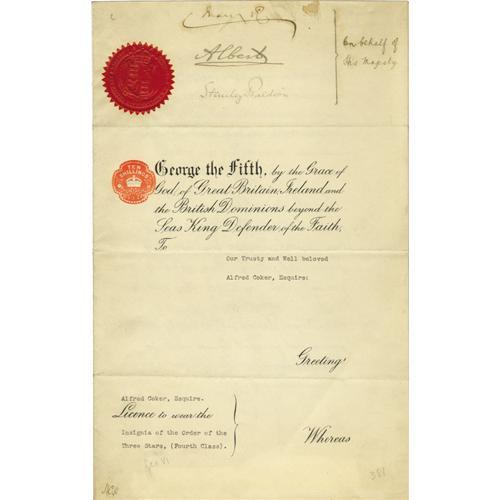 Mary R
Albert
Stanley Baldwin
On behalf of
His Majesty
TEN
SHILLINGS
George the Fifth, by the Grace of
God, of Great Britain, Ireland and
the British Dominions beyond the
Seas King Defender of the Faith,
To
Our Trusty and Well beloved
Alfred Coker, Esquire:
Greeting!
Alfred Coker, Esquire.
Licence to wear the
Insignia of the Order of the
Three Stars, (Fourth Class).
Whereas
Geo VI
381